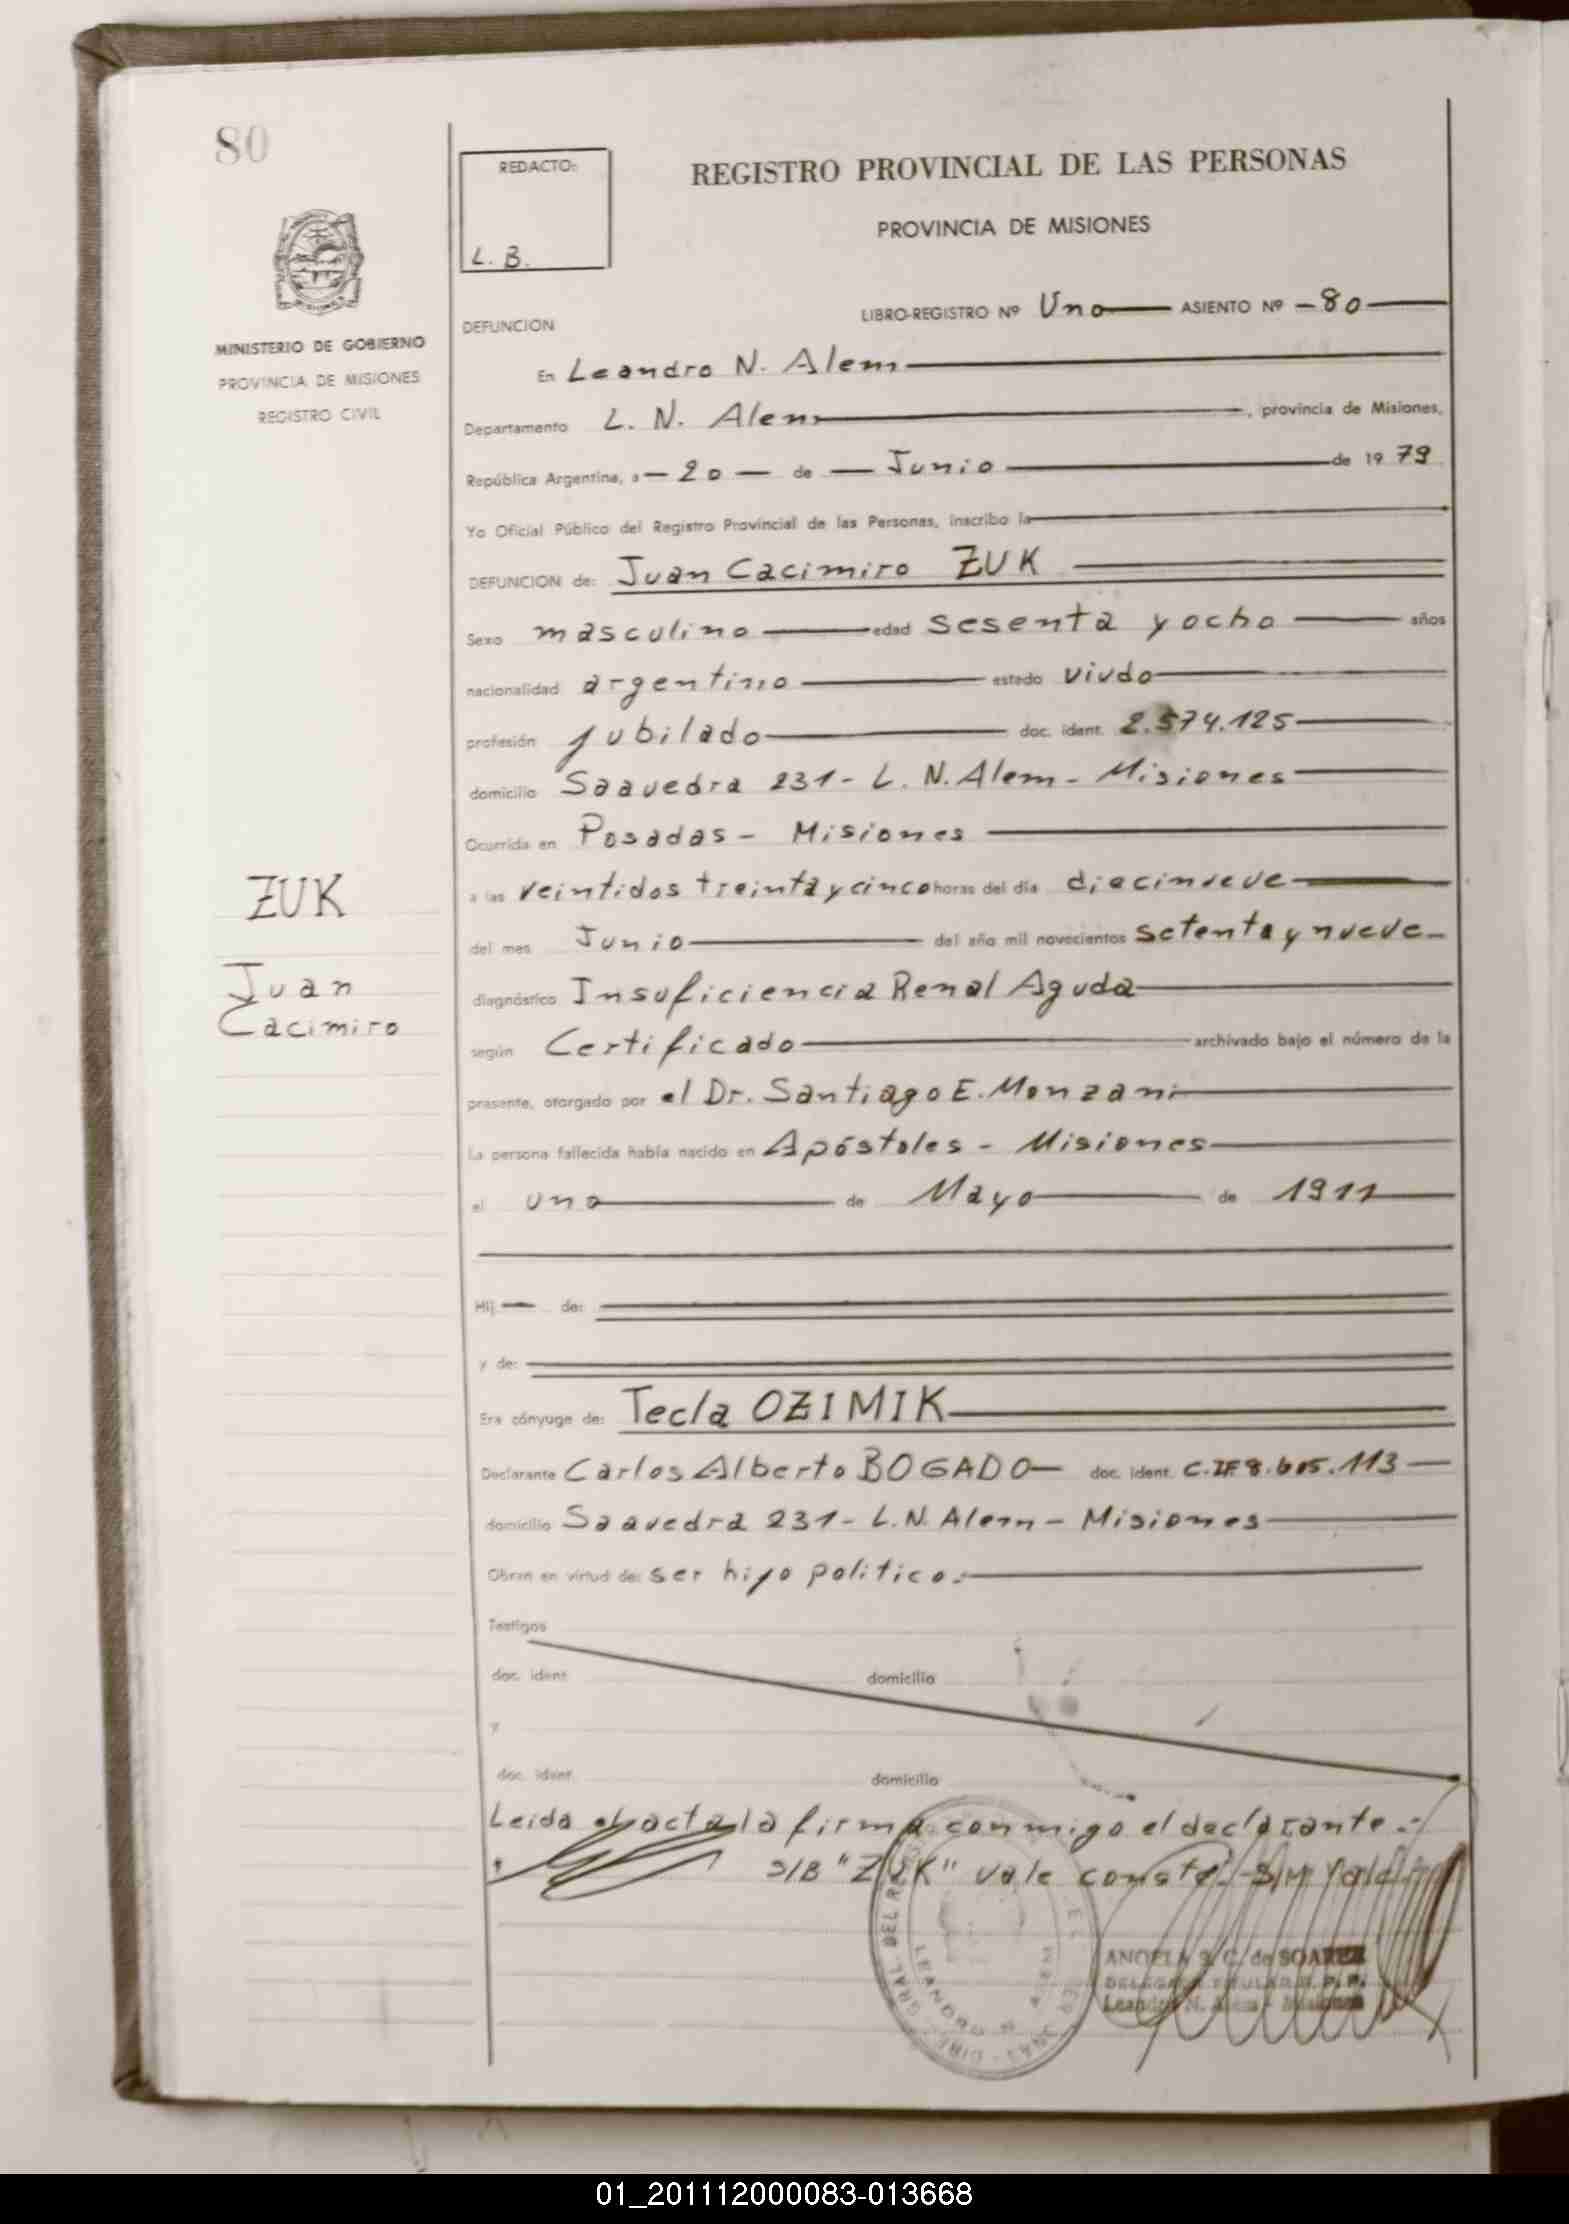 80
REDACTO:
L. B.
REGISTRO PROVINCIAL DE LAS PERSONAS
PROVINCIA DE MISIONES
MINISTERIO DE GOBIERNO
PROVINCIA DE MISIONES
REGISTRO CIVIL
LIBRO-REGISTRO Nº Uno ASIENTO Nº -80
DEFUNCION
En Leandro N. Alem
Departamento L. N. Alem, provincia de Misiones,
República Argentina, a - 20 - de - Junio de 1979
Yo Oficial Público del Registro Provincial de las Personas, inscribo la
DEFUNCION de: Juan Cacimiro ZUK
Sexo masculino edad sesenta y ocho años
nacionalidad argentino estado viudo
profesión jubilado doc. ident. 2.574.125
domicilio Saavedra 231 - L. N. Alem - Misiones
Ocurrida en Posadas - Misiones
a las veintidos treinta y cinco horas del día diecinueve
del mes Junio del año mil novecientos setenta y nueve
diagnóstico Insuficiencia Renal Aguda
según Certificado archivado bajo el número de la
presente, otorgado por el Dr. Santiago E. Monzani
La persona fallecida había nacido en Apóstoles - Misiones
el uno de Mayo de 1911
Hij de:
y de:
Era cónyuge de: Tecla OZIMIK
Declarante Carlos Alberto BOGADO doc. ident. 8.605.113
domicilio Saavedra 231 - L. N. Alem - Misiones
Obran en virtud de: ser hijo politico.-
Testigos
doc. ident. domicilio
y
doc. ident. domicilio
Leida el acta la firma conmigo el declarante.-
S/B "ZUK" vale conste.
ANGELA S. C. de SOAREZ
DELEGADA TITULAR R. P. P.
Leandro N. Alem - Misiones
LEANDRO N. ALEM
ZUK
Juan
Cacimiro
01_201112000083-013668